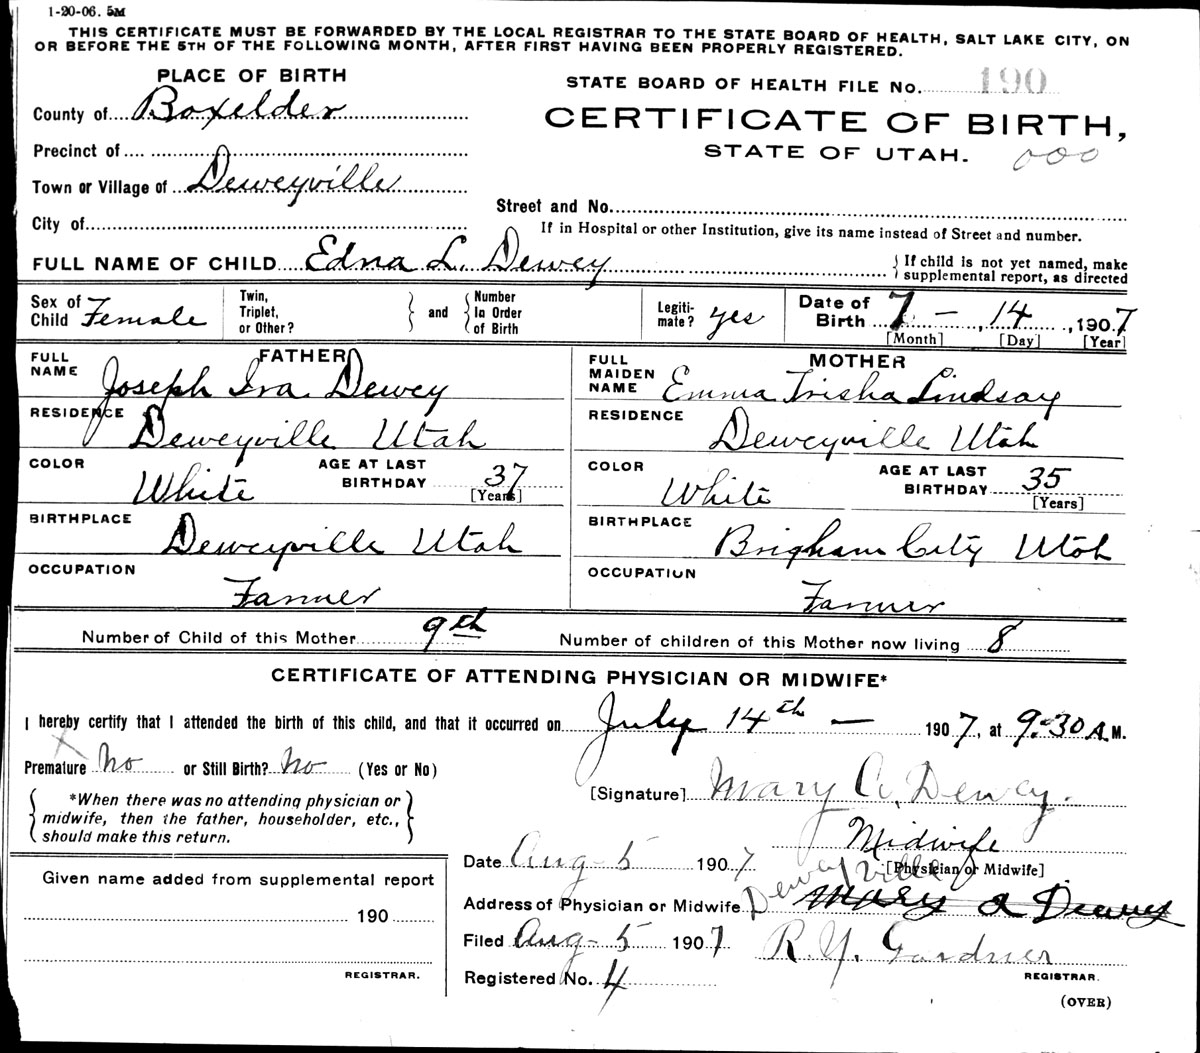 1-20-06. 5M
THIS CERTIFICATE MUST BE FORWARDED BY THE LOCAL REGISTRAR TO THE STATE BOARD OF HEALTH, SALT LAKE CITY, ON
OR BEFORE THE 5TH OF THE FOLLOWING MONTH, AFTER FIRST HAVING BEEN PROPERLY REGISTERED.
PLACE OF BIRTH
STATE BOARD OF HEALTH FILE No. 190
County of Boxelder
CERTIFICATE OF BIRTH,
Precinct of
STATE OF UTAH. 000
Town or Village of Deweyville
Street and No.
City of
If in Hospital or other Institution, give its name instead of Street and number.
FULL NAME OF CHILD Edna L. Dewey { If child is not yet named, make supplemental report, as directed
Sex of Child Female
Twin, Triplet, or Other? } and { Number In Order of Birth
Legitimate? yes
Date of Birth 7 - 14, 1907
[Month] [Day] [Year]
FATHER
FULL NAME Joseph Ira Dewey
RESIDENCE Deweyville Utah
COLOR White AGE AT LAST BIRTHDAY 37 [Years]
BIRTHPLACE Deweyville Utah
OCCUPATION Farmer
MOTHER
FULL MAIDEN NAME Emma Trisha Lindsay
RESIDENCE Deweyville Utah
COLOR White AGE AT LAST BIRTHDAY 35 [Years]
BIRTHPLACE Brigham City Utah
OCCUPATION Farmer
Number of Child of this Mother 9th Number of children of this Mother now living 8
CERTIFICATE OF ATTENDING PHYSICIAN OR MIDWIFE*
I hereby certify that I attended the birth of this child, and that it occurred on July 14th — 1907, at 9:30 A.M.
Premature No or Still Birth? No (Yes or No)
[Signature] Mary A. Dewey.
{ *When there was no attending physician or
midwife, then the father, householder, etc.,
should make this return. }
Midwife
[Physician or Midwife]
Date Aug-5 1907
Given name added from supplemental report
190
REGISTRAR.
Address of Physician or Midwife Deweyville Mary A Dewey
Filed Aug-5 1907 R. Y. Gardner
REGISTRAR.
Registered No. 4
(OVER)